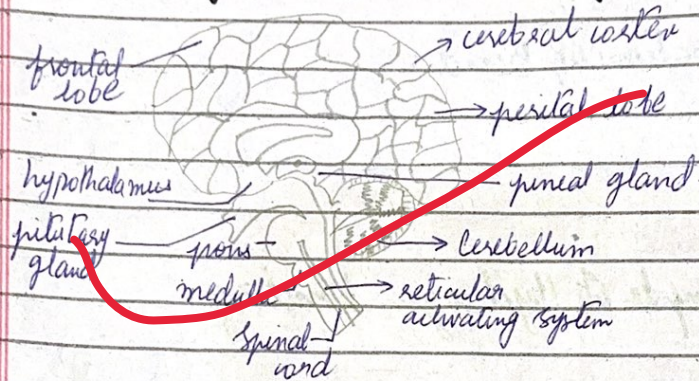 cerebral cortex
frontal
lobe
perital lobe
hypothalamus
pineal gland
pitutary
gland
pons
Cerebellum
medulla
reticular
activating system
Spinal
cord